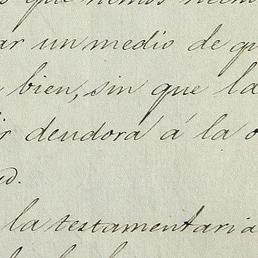 que hemos
ar un medio de qu
bien, sin que la
ir deudora á la o
ud.
la testamentaria